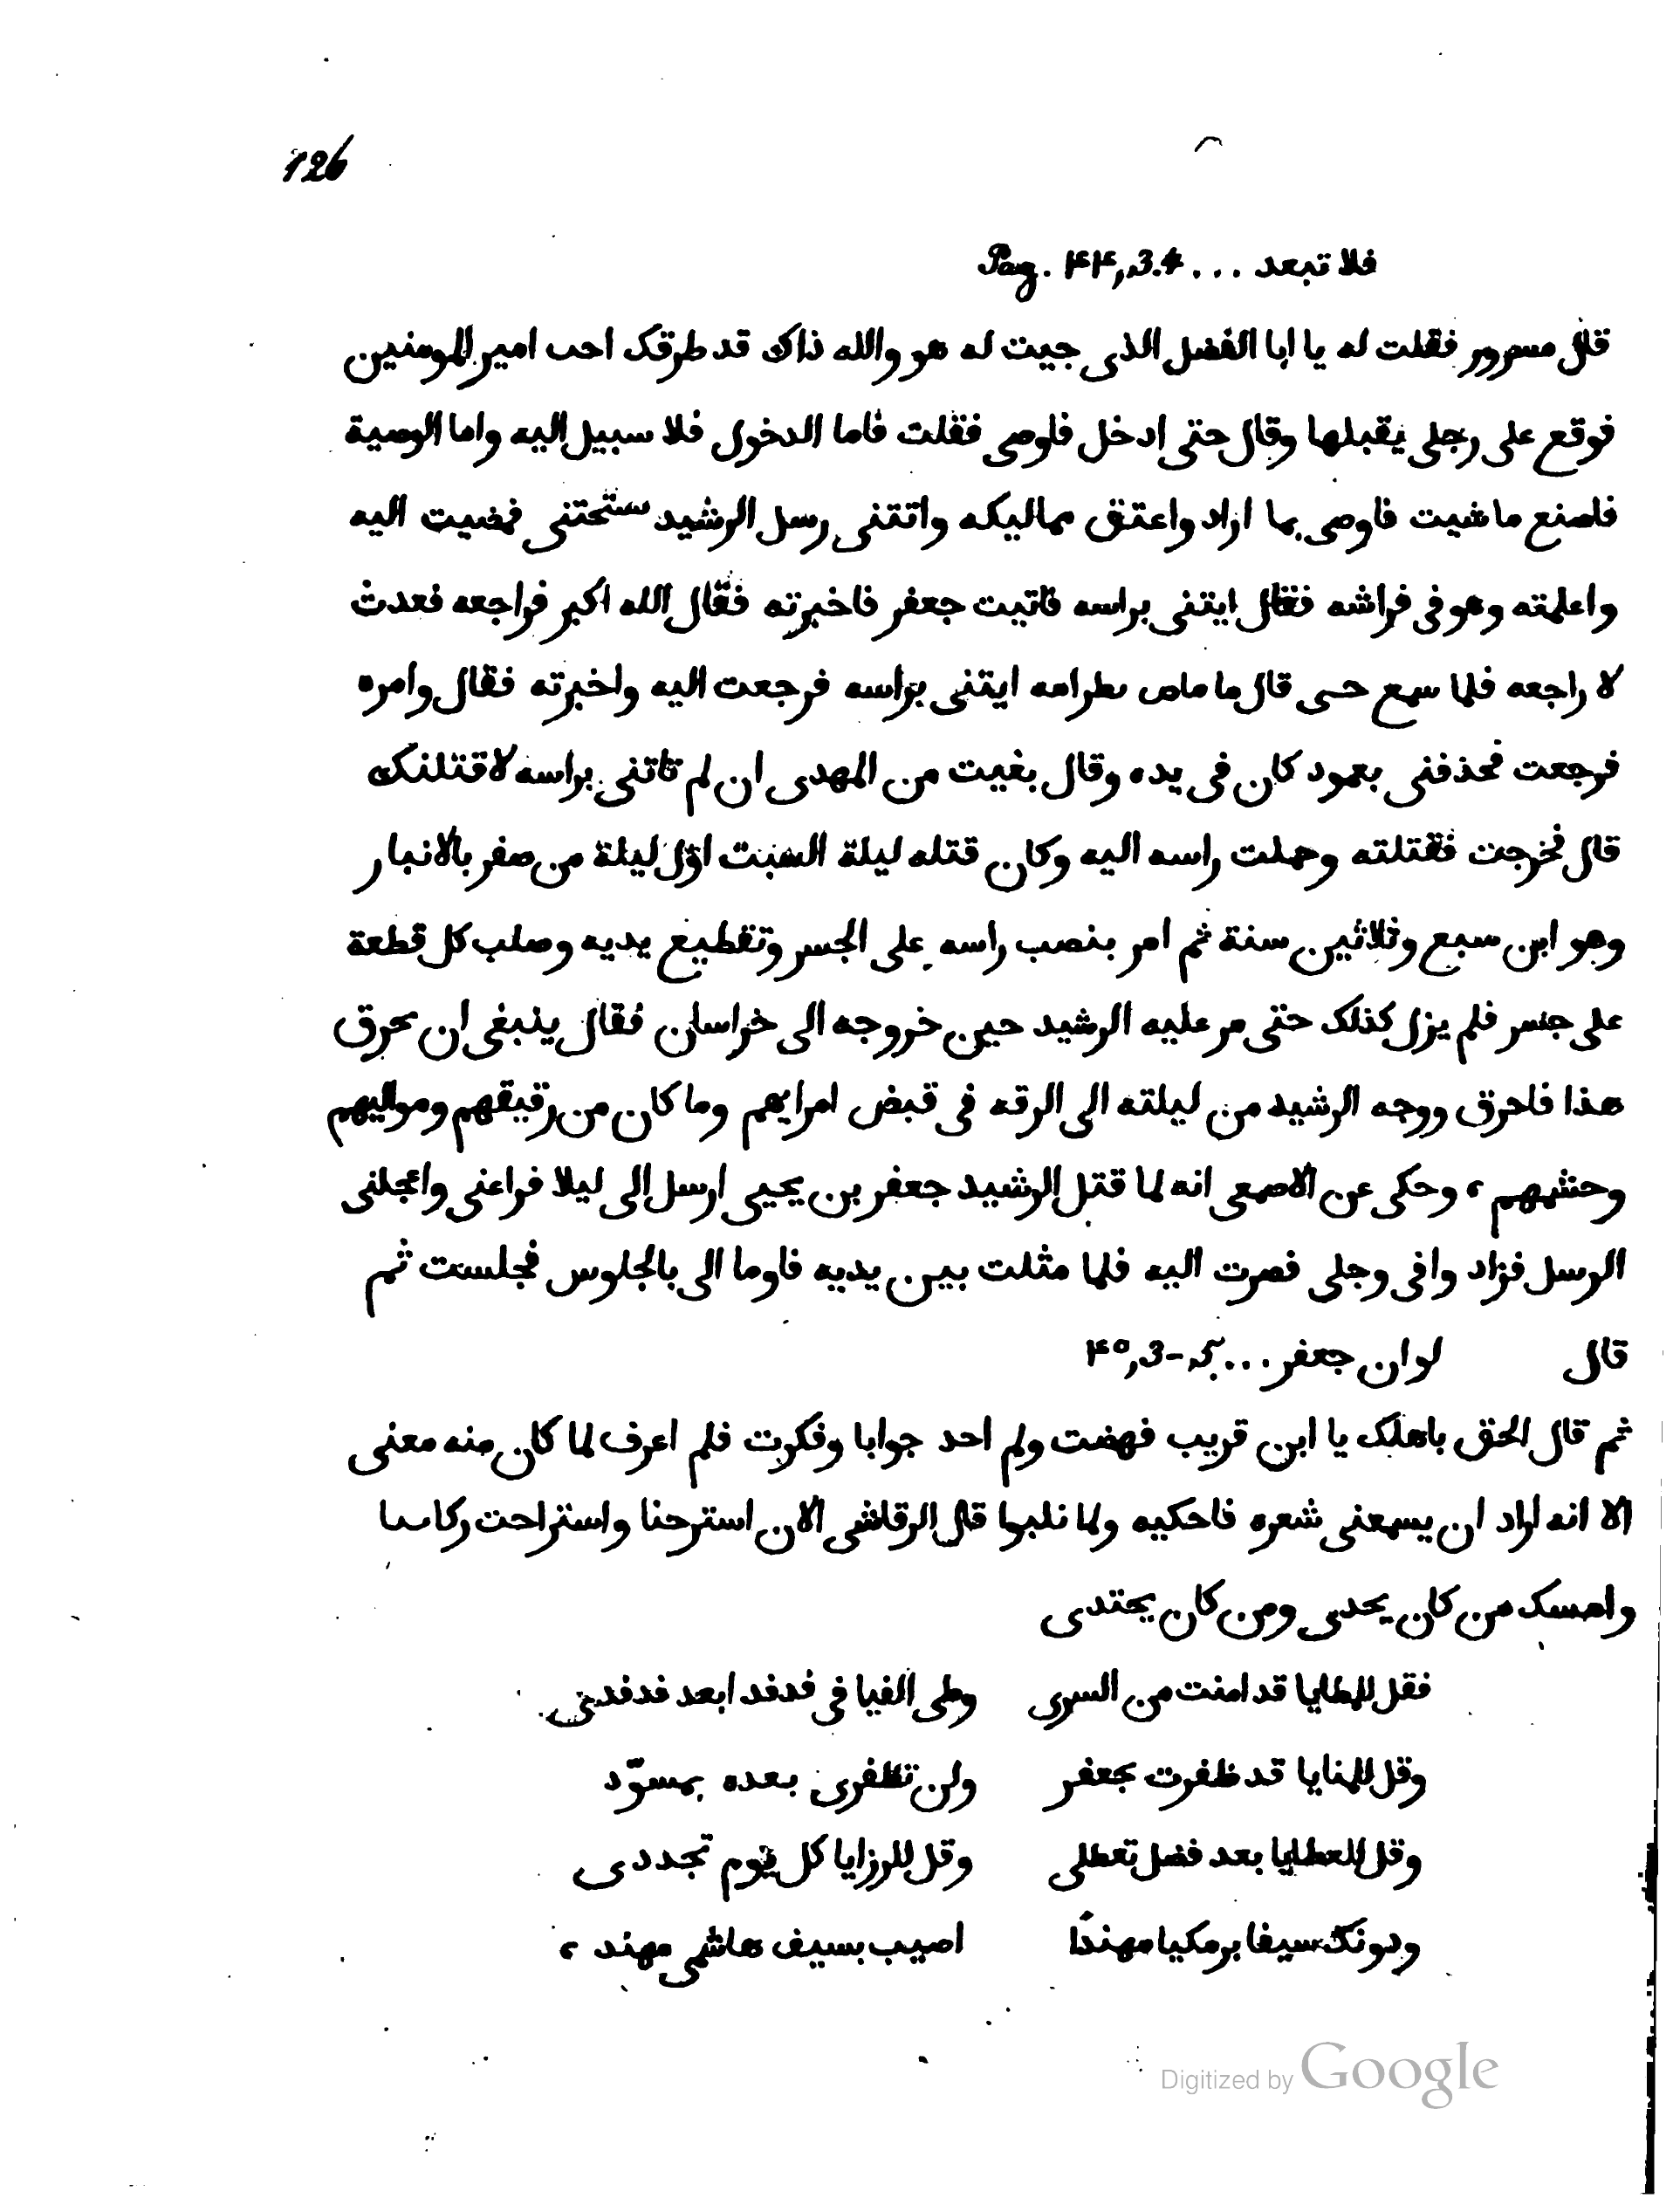 126
فلا تبعد ... Pag. ۴۴, 3.4
قال مسرور فقلت له يا ابا الفضل الذى جيت له هو والله ذاك قد طرقك احب امير المومنين
فوقع على رجلى يقبلها وقال حتى ادخل فاوصى فقلت فاما الدخول فلا سبيل اليه واما الوصية
فاصنع ما شيت فاوصى بما اراد واعتق مماليكه واتتنى رسل الرشيد ستحتنى فمضيت اليه
واعلمته وهو فى فراشه فقال ايتنى براسه فاتيت جعفر فاخبرته فقال الله اكبر فراجعه فعدت
لا راجعه فلما سمع حسى قال ايتنى براسه فرجعت اليه واخبرته فقال وامره
فرجعت فحذفنى بعمود كان فى يده وقال بغيت من المهدى ان لم تاتنى براسه لاقتلنك
قال فخرجت فقتلته وحملت راسه اليه وكان قتله ليلة السبت اوّل ليلة من صفر بالانبار
وهو ابن سبع وثلاثين سنة ثم امر بنصب راسه على الجسر وتقطيع يديه وصلب كل قطعة
على جسر فلم يزل كذلك حتى مر عليه الرشيد حين خروجه الى خراسان فقال ينبغى ان يحرق
هذا فاحرق ووجه الرشيد من ليلته الى الرقه فى قبض امرايهم وما كان من رقيقهم ومواليهم
وحشمهم، وحكى عن الاصمعى انه لما قتل الرشيد جعفر بن يحيى ارسل الى ليلا فراعنى واعجلنى
الرسل فزاد وافى وجلى فصرت اليه فلما مثلت بين يديه فاوما الى بالجلوس فجلست ثم
قال لو ان جعفر ... ۴۵, 3-5
ثم قال الحق باهلك يا ابن قريب فهضت ولم احد جوابا وفكرت فلم اعرف لما كان منه معنى
الا انه اراد ان يسمعنى شعره فاحكيه ولما نلبوا قال الرقاشى الان استرحنا واستراحت ركاسا
وامسك من كان يحدى ومن كان يحتدى
فقل للمطايا قد امنت من السرى وطى الفيا فى فدفد ابعد فدفدى
وقل للمنايا قد ظفرت بجعفر ولن تظفرى بعده بمسوّد
وقل للعطايا بعد فضل تعطلى وقل للرزايا كل يوم تجددى
ودونك سيفا برمكيا مهندًا اصيب بسيف هاشمى مهند،
Digitized by Google